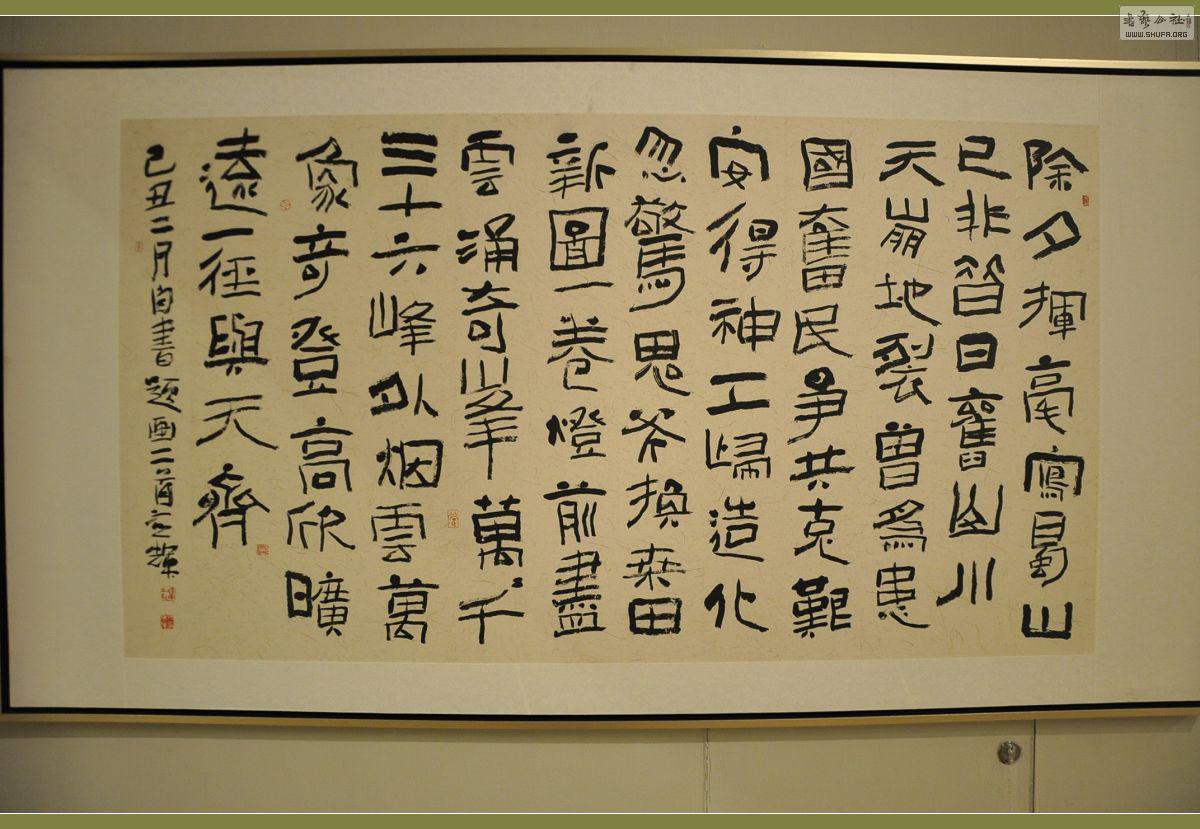 除夕揮毫寫蜀山
已非昔日舊山川
天崩地裂曾為患
國奮民爭共克艱
安得神工歸造化
忽驚鬼斧換桑田
新圖一卷燈前盡
雲涌奇峯萬〻千
三十六峰外烟雲萬
象奇登高欣曠
遠一徑與天齊
己丑二月自書題画二首
书艺公社
WWW.SHUFA.ORG